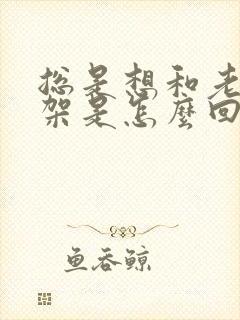 总是想和老
架是怎麼回
鱼吞鲸